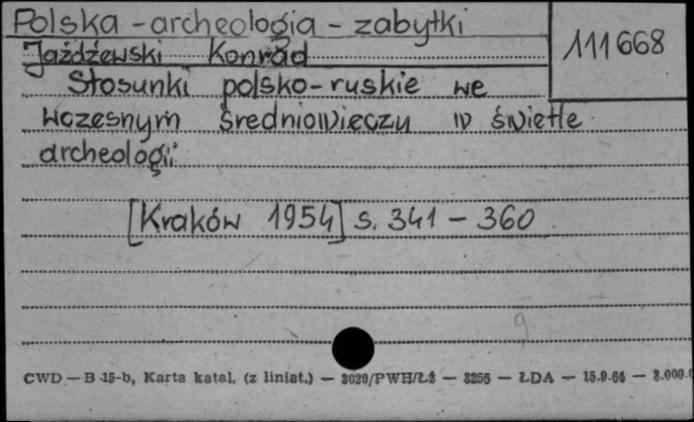 Polska - archeologia - zabytki
111668
Jażdżewski Konrad
Stosunki polsko-ruskie we
wczesnym średniowieczu w świetle
archeologii
[Kraków 1954] s. 341 - 360
9
CWD — B 15-b, Karta katal. (z liniat.) — 3029/PWH/Łż — 3255 — ŁDA — 15.9.64 —